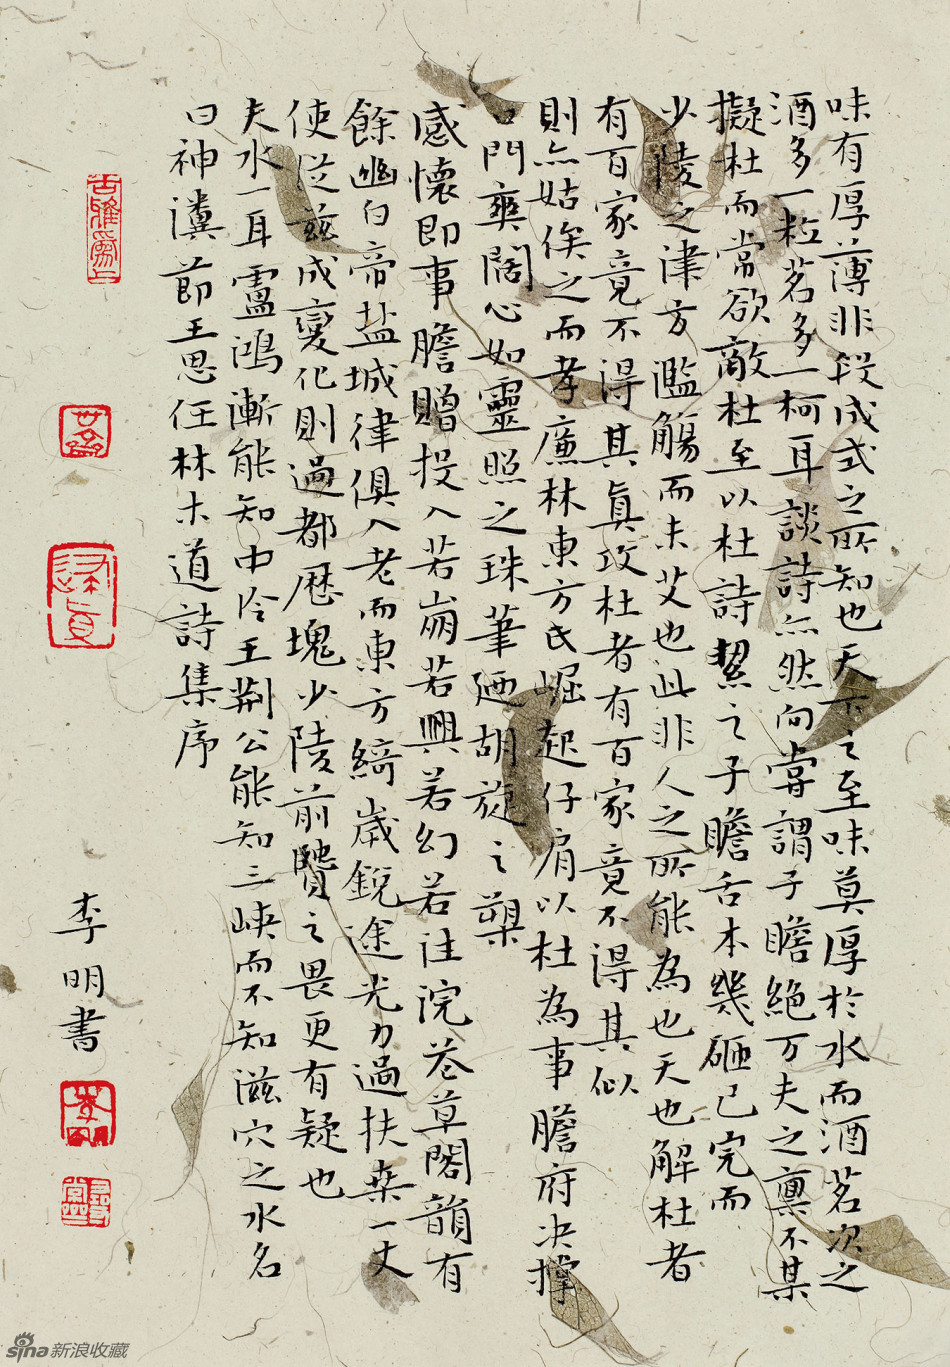 味有厚薄非段成式之所知也天下之至味莫厚於水而酒茗次之
酒多一粒茗多一柯耳談詩亦然向嘗謂子瞻絕万夫之稟不某
擬杜而常欲敵杜至以杜詩絜之子瞻舌本幾砸已完而
少陵之津方濫觴而未艾也此非人之所能為也天也解杜者
有百家竟不得其真攻杜者有百家竟不得其似
則亦姑俟之而孝廉林東方氏崛起仔肩以杜為事膽府決撐
口門爽闊心如靈照之珠筆迺胡旋之槊
感懷即事膽贈投入若崩若興若幻若註浣花草閣韻有
餘幽白帝盐城律俱入老而東方綺歲銳途光力過扶桒一丈
使從茲成變化則過都歷塊少陵前贒之畏更有疑也
夫水一耳盧鴻漸能知中泠王荆公能知三峽而不知滋穴之水名
曰神瀵 節王思任林木道詩集序
李明書
新浪收藏
sina